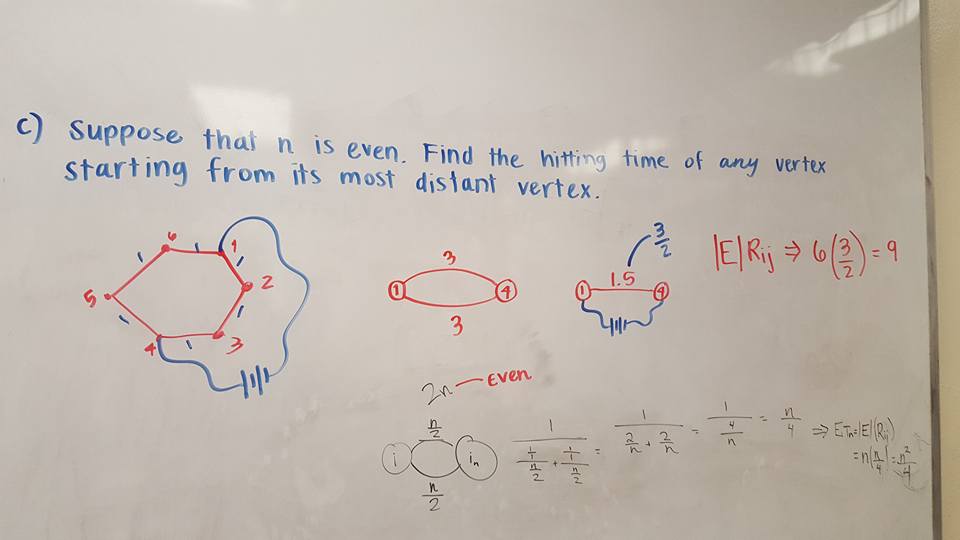 c) Suppose that n is even. Find the hitting time of any vertex
starting from its most distant vertex.
6 1 2 3 4 5
1 1 1 1 1 1
3
1 4
3
3/2
1.5
1 4
|E|Rij ⇒ 6(3/2) = 9
2n — Even
n/2
i in
n/2
1/(1/(n/2) + 1/(n/2)) = 1/(2/n + 2/n) = 1/(4/n) = n/4 ⇒ EiTn = |E|(Rij)
= n(n/4) = n²/4